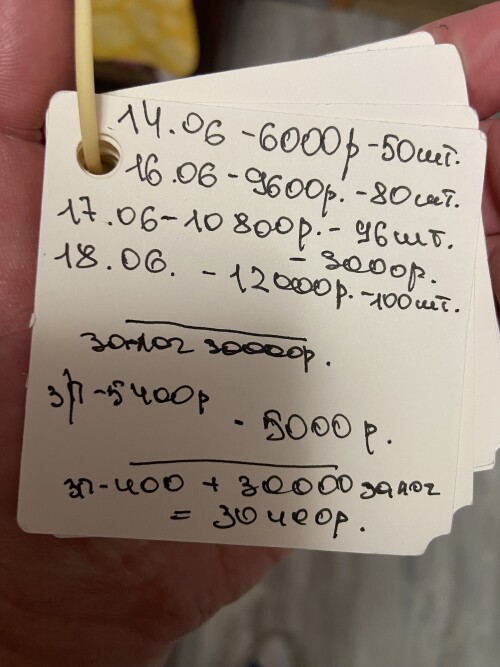 14.06 - 6000р - 50шт.
16.06 - 9600р. - 80шт.
17.06 - 10800р. - 96шт.
- 3000р.
18.06. - 12000р. - 100шт.
залог 30000р.
зп - 5400р
- 5000р.
зп - 400 + 30000 залог
= 30400р.